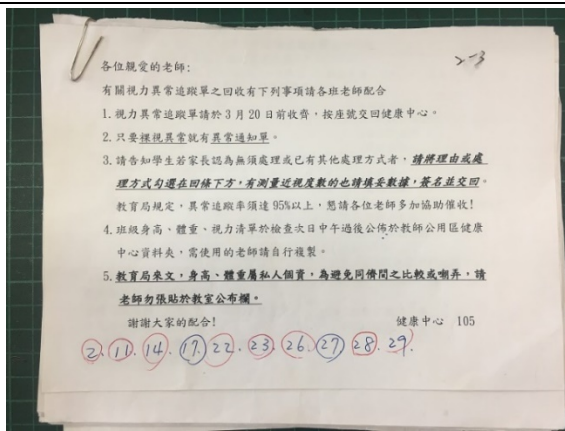 各位親愛的老師:
2-3
有關視力異常追蹤單之回收有下列事項請各班老師配合
1. 視力異常追蹤單請於 3 月 20 日前收齊,按座號交回健康中心。
2. 只要裸視異常就有異常通知單。
3. 請告知學生若家長認為無須處理或已有其他處理方式者,請將理由或處
理方式勾選在回條下方,有測量近視度數的也請填妥數據,簽名並交回。
教育局規定,異常追蹤率須達 95%以上,懇請各位老師多加協助催收!
4. 班級身高、體重、視力清單於檢查次日中午過後公佈於教師公用區健康
中心資料夾,需使用的老師請自行複製。
5. 教育局來文,身高、體重屬私人個資,為避免同儕間之比較或嘲弄,請
老師勿張貼於教室公布欄。
謝謝大家的配合! 健康中心 105
2. 11. 14. 17. 22. 23. 26. 27 28. 29.